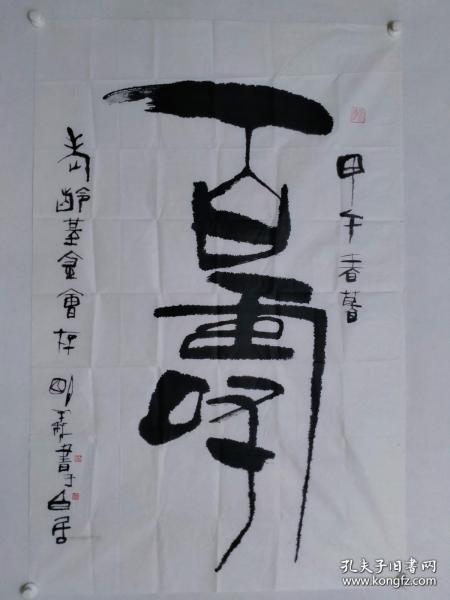 甲午春暮
百壽
齡基金會存 明書于白居
孔夫子旧书网
www.kongfz.com